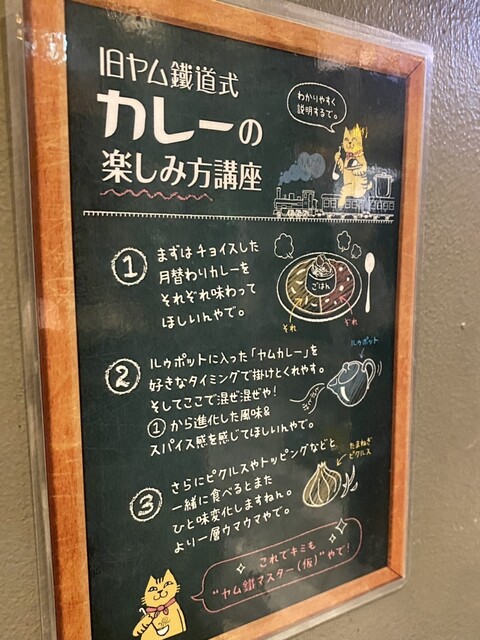 旧ヤム鐵道式
カレーの
楽しみ方講座
わかりやすく
説明するで。
①
まずはチョイスした
月替わりカレーを
それぞれ味わって
ほしいんやで。
ごはん
それ
ぞれ
②
ルゥポットに入った「ヤムカレー」を
好きなタイミングで掛けとくれやす。
そしてここで混ぜ混ぜや!
①から進化した風味&
スパイス感を感じてほしいんやで。
ルゥポット
③
さらにピクルスやトッピングなどと
一緒に食べるとまた
ひと味変化しますねん。
より一層ウマウマやで。
たまねぎ
ピクルス
これでキミも
"ヤム鐵マスター(仮)"やで!